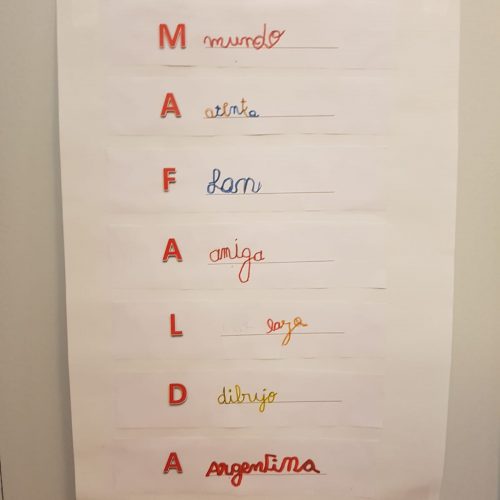 M mundo
A atenta
F fan
A amiga
L lazo
D dibujo
A argentina